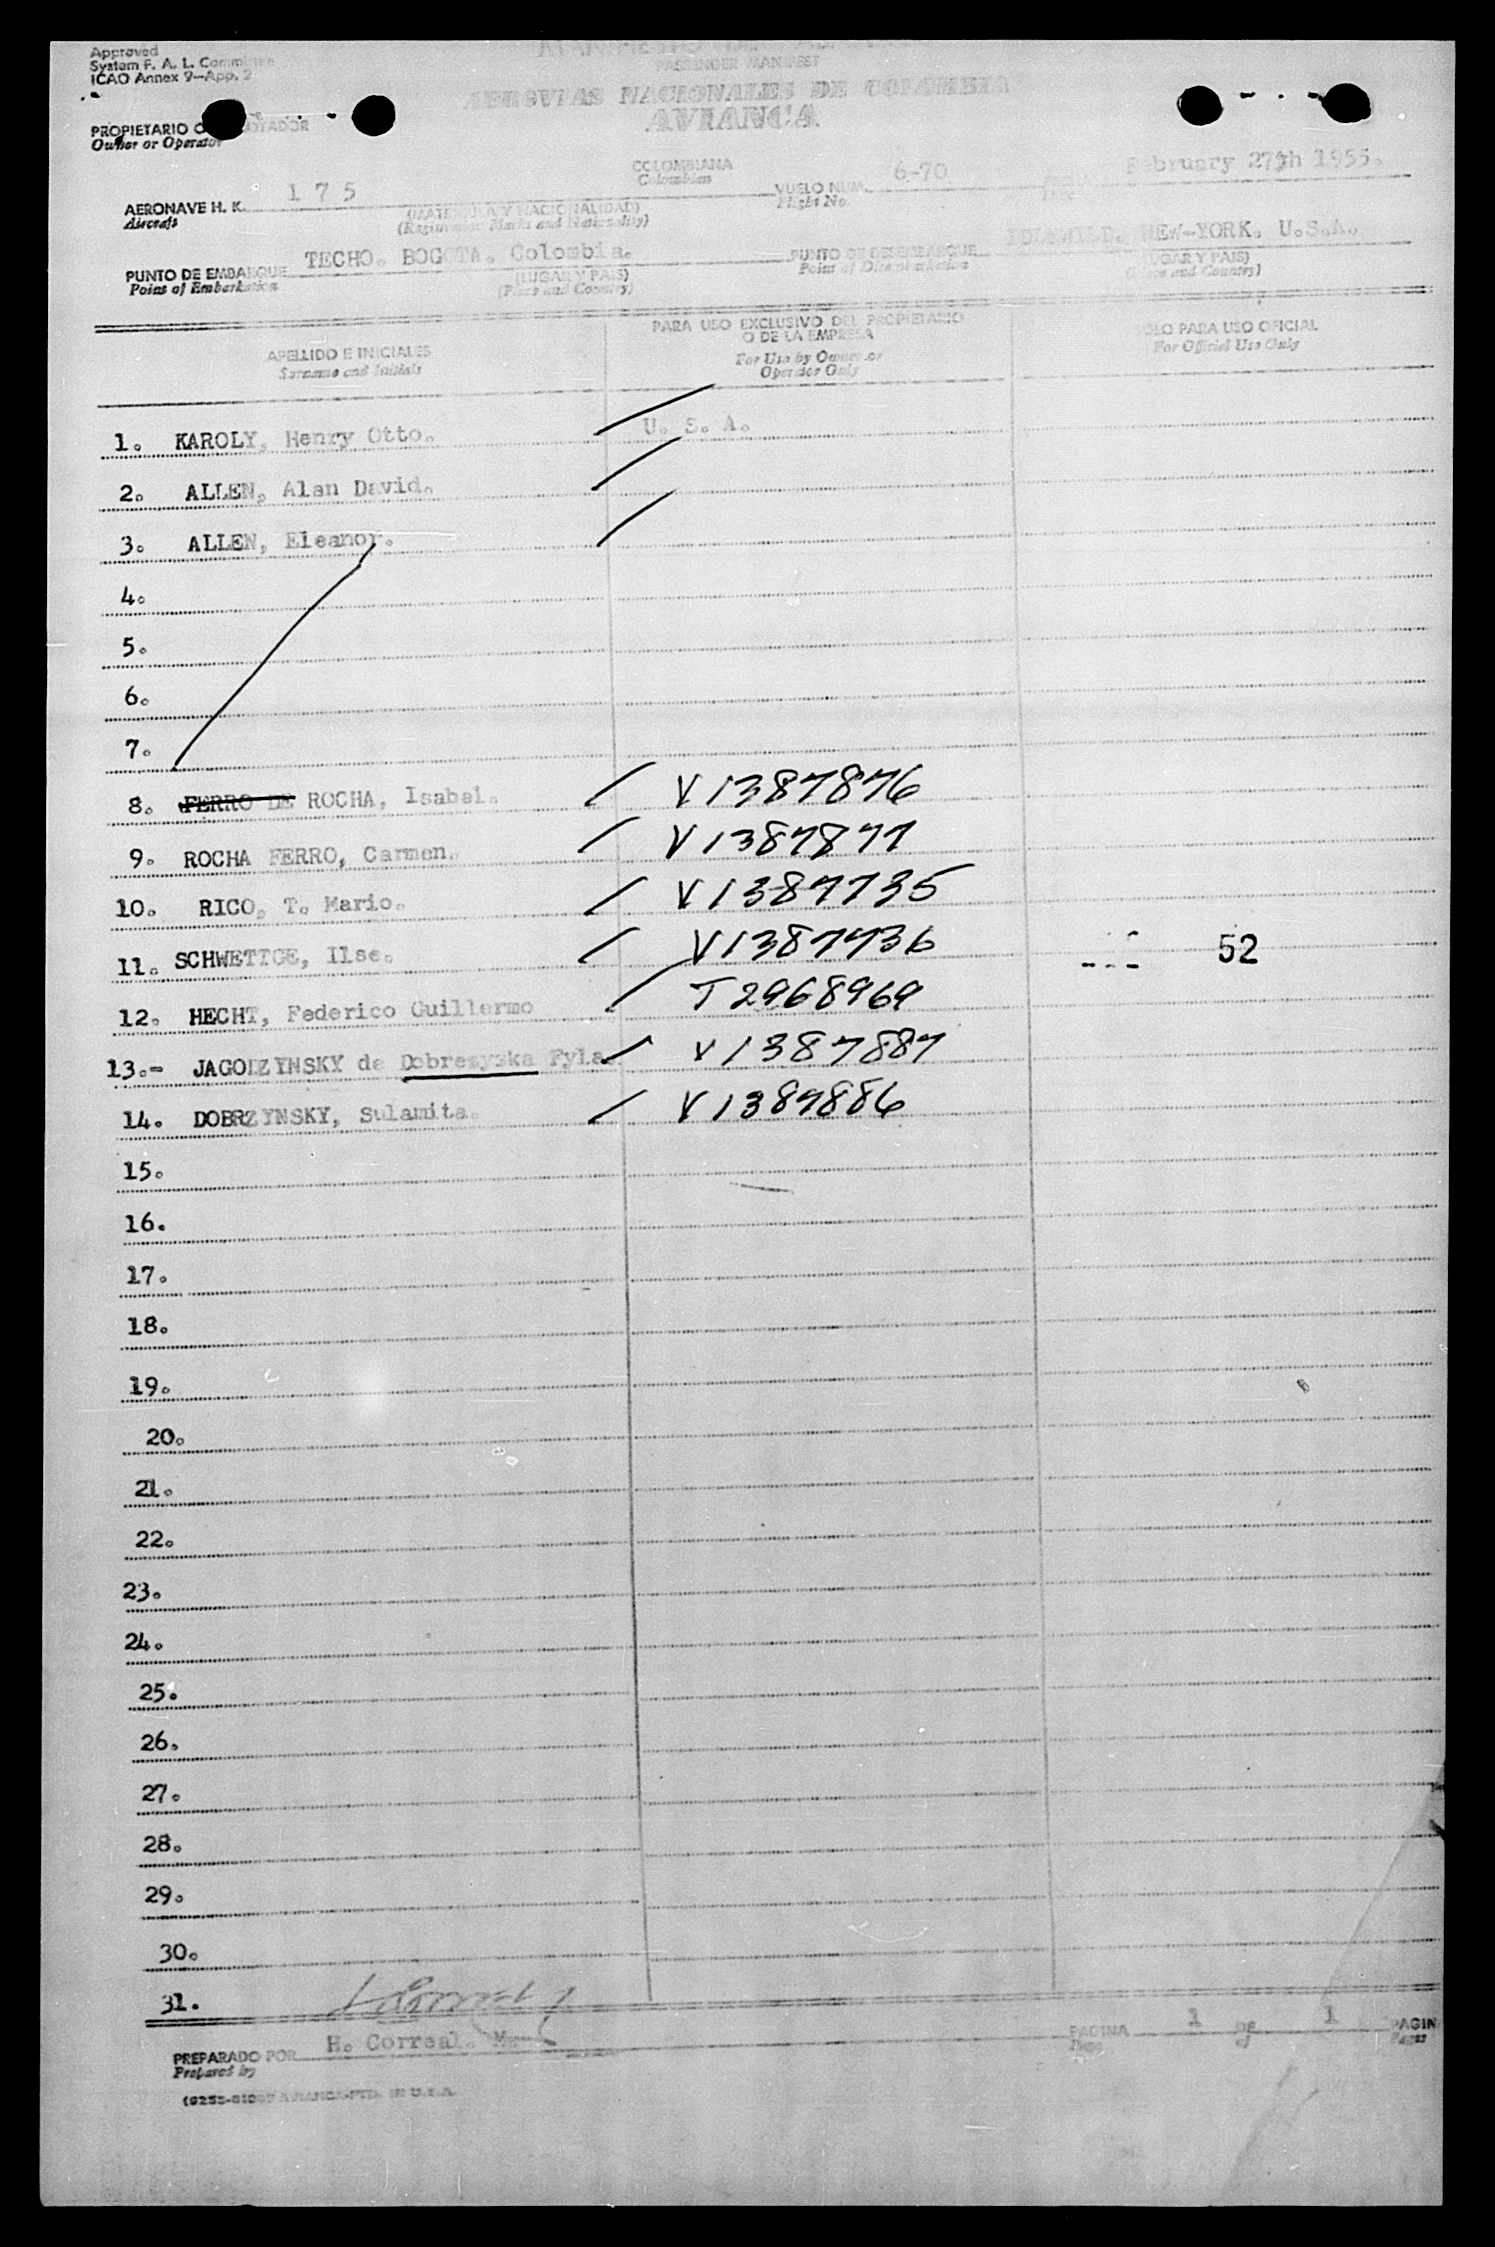 Approved
System F. A. L. Committee
ICAO Annex 9—App. 2
PASSENGER MANIFEST
AEROVIAS NACIONALES DE COLOMBIA
AVIANCA
PROPIETARIO O
Owner or Operator
COLOMBIANA
Colombian
February 27th 1955.
AERONAVE H. K. 1 7 5
Aircraft
(MATRICULA Y NACIONALIDAD)
(Registration Marks and Nationality)
VUELO NUM. 6-70
Flight No.
PUNTO DE EMBARQUE TECHO. BOGOTA. Colombia.
Point of Embarkation
(LUGAR Y PAIS)
(Place and Country)
PUNTO DE DESEMBARQUE IDLEWILD. NEW-YORK. U.S.A.
Point of Disembarkation
(LUGAR Y PAIS)
(Place and Country)
APELLIDO E INICIALES
Surname and Initials
PARA USO EXCLUSIVO DEL PROPIETARIO
O DE LA EMPRESA
For Use by Owner or
Operator Only
SOLO PARA USO OFICIAL
For Official Use Only
1. KAROLY, Henry Otto. U. S. A.
2. ALLEN, Alan David.
3. ALLEN, Eleanor.
4.
5.
6.
7.
8. FERRO DE ROCHA, Isabel. V1387876
9. ROCHA FERRO, Carmen. V1387877
10. RICO, T. Mario. V1387735
11. SCHWETTGE, Ilse. V1387736 52
12. HECHT, Federico Guillermo T2968969
13.- JAGODZYNSKY de Dobrezynska Fyla V1387887
14. DOBRZYNSKY, Sulamita. V1387886
15.
16.
17.
18.
19.
20.
21.
22.
23.
24.
25.
26.
27.
28.
29.
30.
31.
PREPARADO POR H. Correal. M.
Prepared by
PAGINA 1 DE 1 PAGIN
Page of Pages